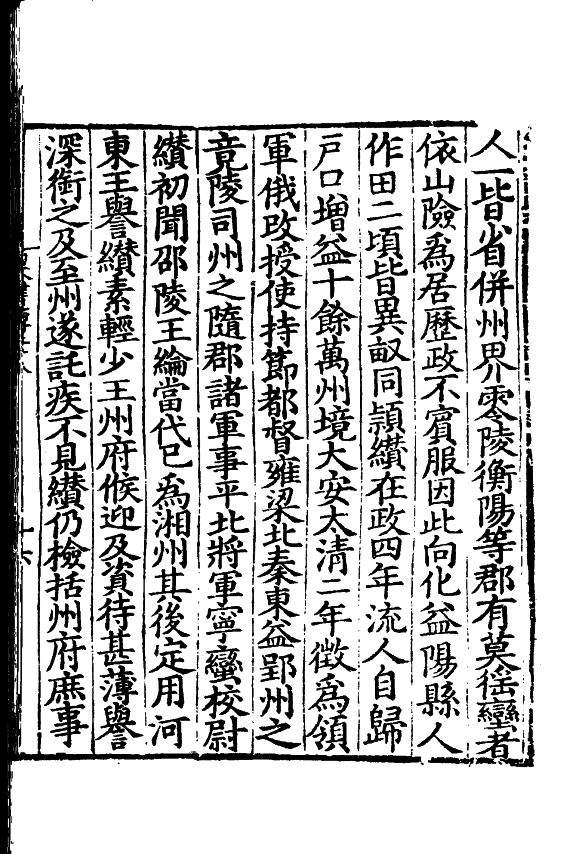 人一皆省併州界零陵衡陽等郡有莫徭蠻者
依山險為居歷政不賓服因此向化益陽縣人
作田二頃皆異畝同頴纘在政四年流人自歸
戸口增益十餘萬州境大安太清二年徵為領
軍俄改授使持節都督雍梁北秦東益郢州之
竟陵司州之隨郡諸軍事平北將軍寧蠻校尉
纘初聞邵陵王綸當代已為湘州其後定用河
東王譽纘素輕少王州府候迎及資待甚薄譽
深銜之及至州遂託疾不見纘仍檢括州府庶事